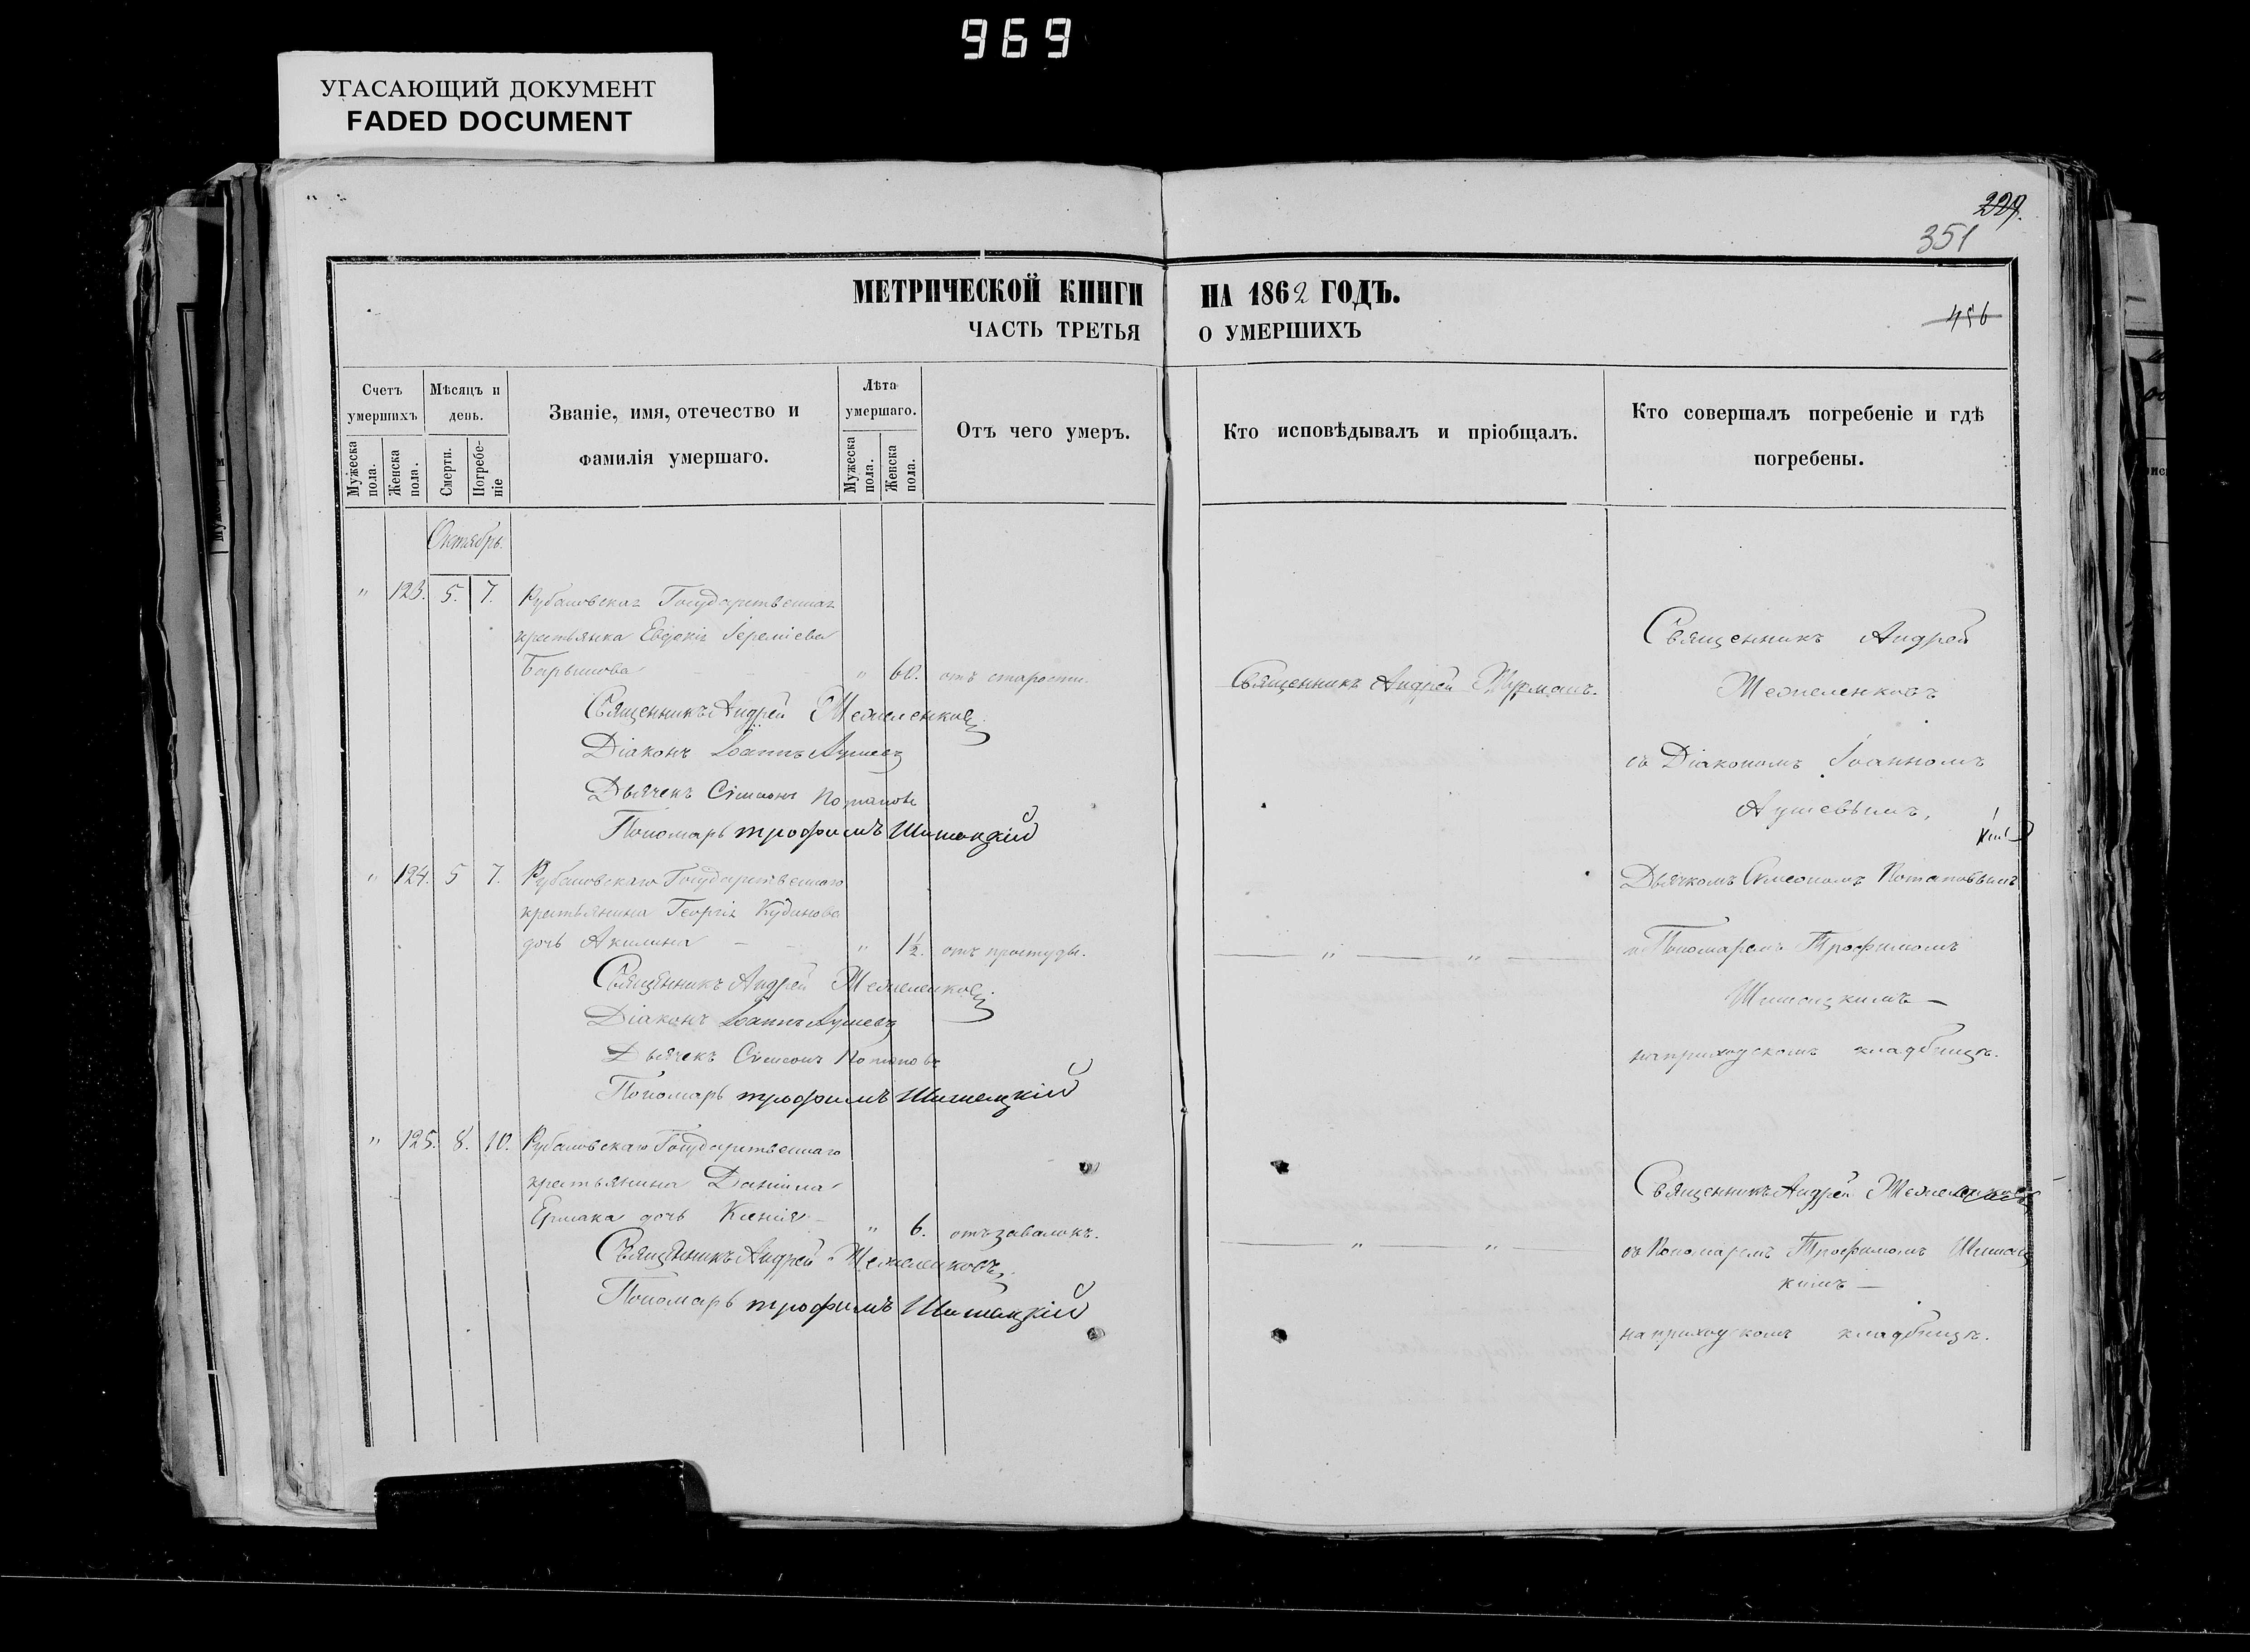 969
УГАСАЮЩИЙ ДОКУМЕНТ
FADED DOCUMENT
229.
351
МЕТРИЧЕСКОЙ КНИГИ НА 1862 ГОДЪ.
ЧАСТЬ ТРЕТЬЯ О УМЕРШИХЪ
456
Счетъ умершихъ
Мужеска пола.
Женска пола.
Мѣсяцъ и день.
Смерти.
Погребеніе
Званіе, имя, отечество и фамилія умершаго.
Лѣта умершаго.
Мужеска пола.
Женска пола.
Отъ чего умеръ.
Кто исповѣдывалъ и пріобщалъ.
Кто совершалъ погребеніе и гдѣ погребены.
Октябрь.
" 123. 5. 7. Рубановская Государственная
крестьянка Евдокія Іереміева
" 60. отъ старости.
Священникъ Андрей
Діаконъ Іоаннъ Лушевъ
Дьячекъ Симеонъ Потаповъ
Пономарь трофимъ Шишацкій
Священникъ Андрей
Священникъ Андрей
съ Діакономъ Іоанномъ
Лушевымъ,
Дьячкомъ Симеономъ Потаповымъ
и Пономаремъ Трофимомъ
Шишацкимъ —
на приходскомъ кладбищѣ.
" 124. 5 7. Рубановскаго Государственнаго
крестьянина Георгія Кудинова
дочь Акилина — " 1½. отъ простуды.
" "
Священникъ Андрей
Діаконъ Іоаннъ Лушевъ
Дьячекъ Симеонъ Потаповъ
Пономарь трофимъ Шишацкій
" 125. 8. 10. Рубановскаго Государственнаго
крестьянина Даніила
Ермака дочь Ксенія — " 6. отъ завалокъ.
" "
Священникъ Андрей
Пономарь трофимъ Шишацкій
Священникъ Андрей
съ Пономаремъ Трофимомъ Шишац
кимъ —
на приходскомъ кладбищѣ.